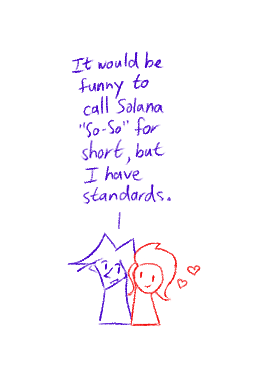 It would be
funny to
call Solana
"So-So" for
short, but
I have
standards.